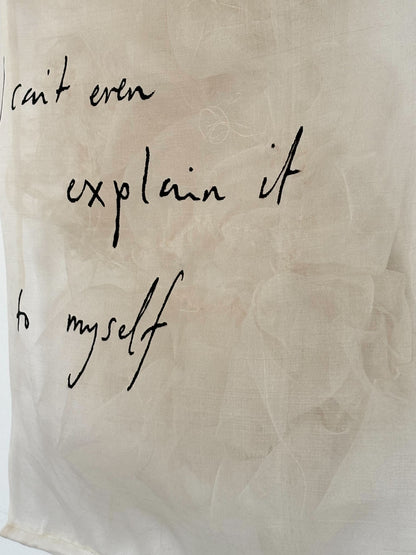 I can't even
explain it
to myself